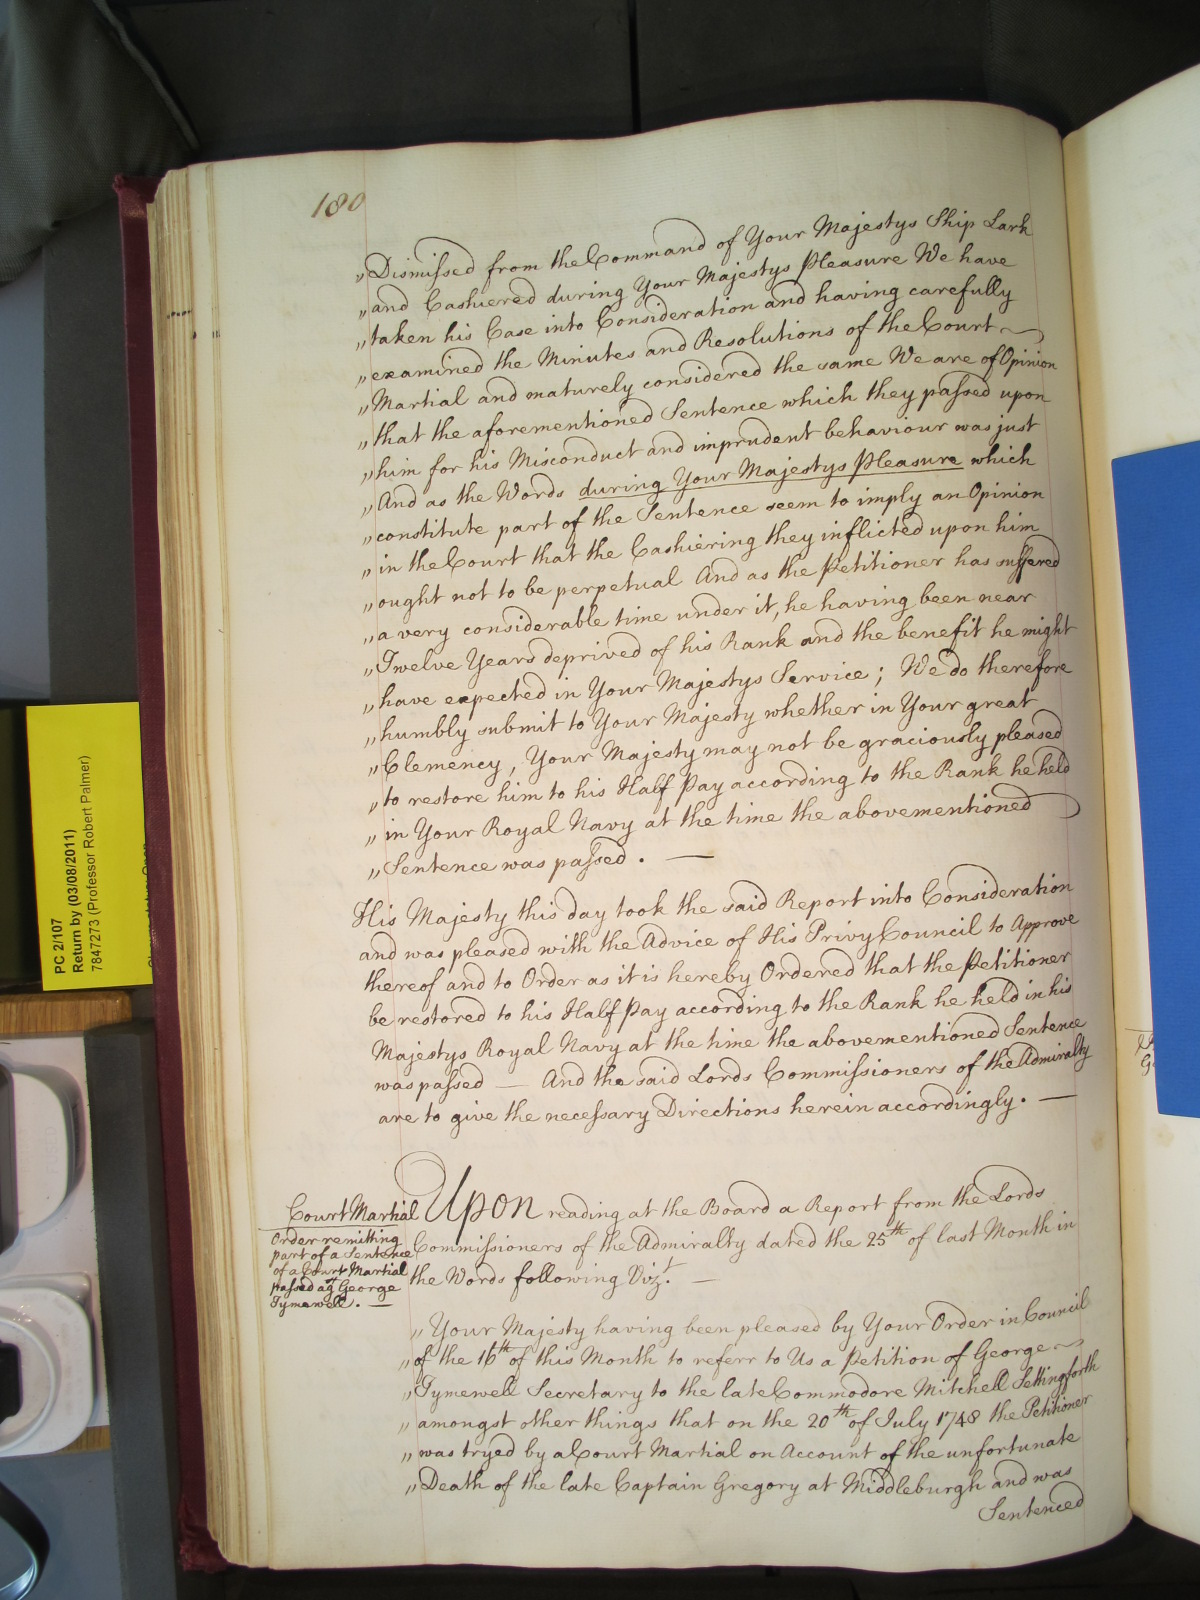 180
„Dismissed from the Command of Your Majestys Ship Lark
„and Cashiered during Your Majestys Pleasure We have
„taken his Case into Consideration and having carefully
„examined the Minutes and Resolutions of the Court
„Martial and maturely considered the same We are of Opinion
„that the aforementioned Sentence which they passed upon
„him for his Misconduct and imprudent behaviour was just
„And as the Words during Your Majestys Pleasure which
„constitute part of the Sentence seem to imply an Opinion
„in the Court that the Cashiering they inflicted upon him
„ought not to be perpetual And as the Petitioner has suffered
„a very considerable time under it, he having been near
„Twelve Years deprived of his Rank and the benefit he might
„have expected in Your Majestys Service; We do therefore
„humbly submit to Your Majesty whether in Your great
„Clemency, Your Majesty may not be graciously pleased
„to restore him to his Half Pay according to the Rank he held
„in Your Royal Navy at the time the abovementioned
„Sentence was passed. —
His Majesty this day took the said Report into Consideration
and was pleased with the Advice of His Privy Council to Approve
thereof and to Order as it is hereby Ordered that the Petitioner
be restored to his Half Pay according to the Rank he held in his
Majestys Royal Navy at the time the abovementioned Sentence
was passed — And the said Lords Commissioners of the Admiralty
are to give the necessary Directions herein accordingly. —
Court Martial
Order remitting
part of a Sentence
of a Court Martial
passed agt George
Tymewell. —
Upon reading at the Board a Report from the Lords
Commissioners of the Admiralty dated the 25th of last Month in
the Words following Vizt. —
„Your Majesty having been pleased by Your Order in Council
„of the 16th of this Month to referr to Us a Petition of George
„Tymewell Secretary to the late Commodore Mitchell Setting forth
„amongst other things that on the 20th of July 1748 the Petitioner
„was tryed by a Court Martial on Account of the unfortunate
„Death of the late Captain Gregory at Middleburgh and was
Sentenced
PC 2/107
Return by (03/08/2011)
7847273 (Professor Robert Palmer)